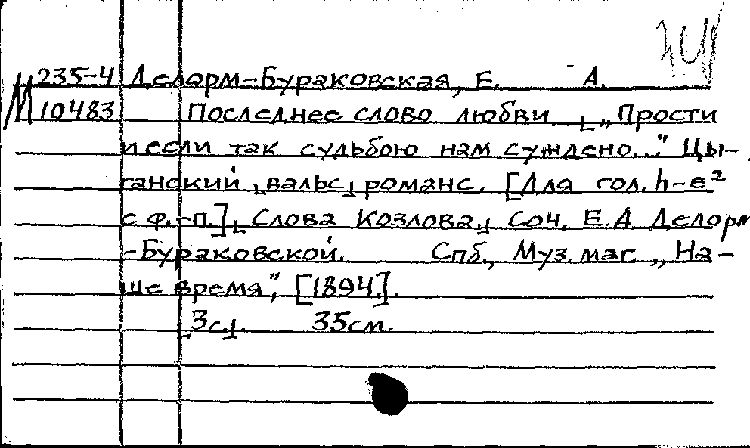 М 235-4 Делорм-Бураковская, Е. А.
10483 Последнее слово любви. „Прости
и если так судьбою нам суждено..." Цы-
ганский вальс, романс. [Для гол. h-e²
с ф.-п.], Слова Козлова, Соч. Е.А. Делорм
-Бураковской. Спб., Муз. маг. „На-
ше время", [1894].
3с. 35см.